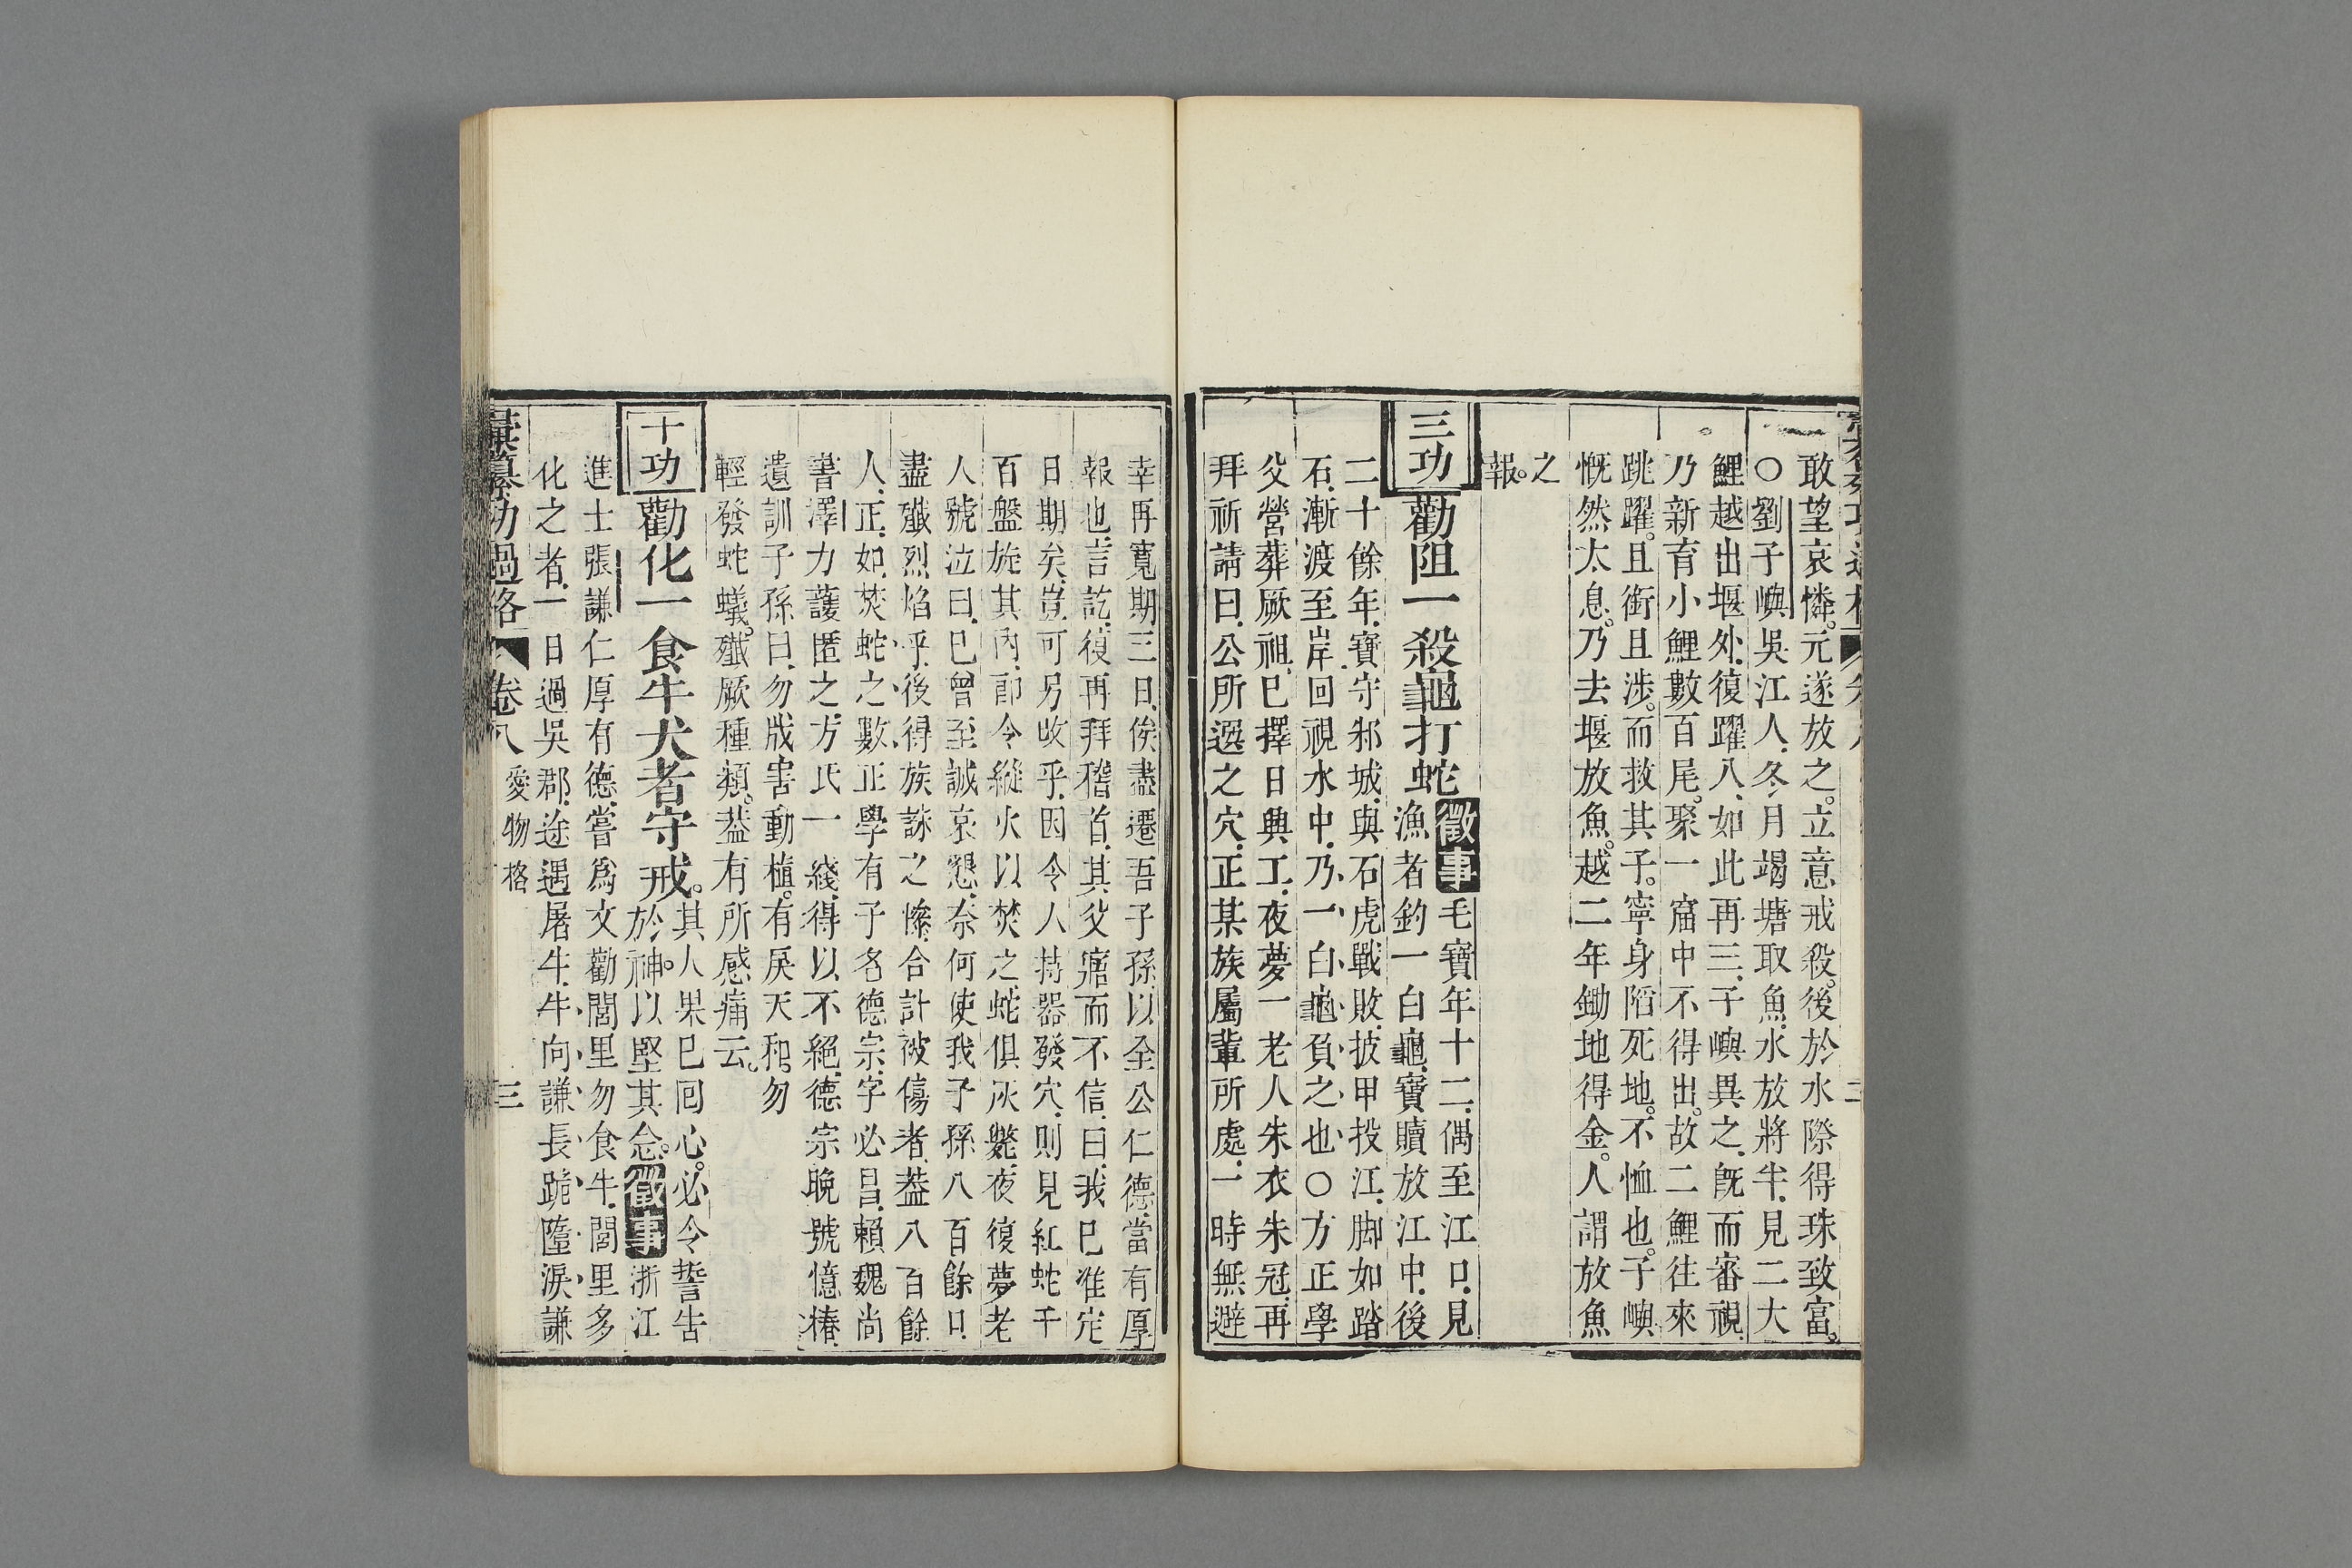 敢望哀憐。元遂放之。立意戒殺。後於水際得珠致富。
○劉子嶼吳江人。冬月竭塘取魚。水放將半。見二大
鯉越出堰外。復躍入。如此再三。子嶼異之。旣而審視。
乃新育小鯉數百尾。聚一窟中不得出。故二鯉往來
跳躍。且銜且涉。而救其子。寧身陷死地。不恤也。子嶼
慨然太息。乃去堰放魚。越二年鋤地得金。人謂放魚
之
報。
三功 勸阻一殺龜打蛇 徵事 毛寶年十二。偶至江口。見
漁者釣一白龜。寶贖放江中。後
二十餘年。寶守邾城。與石虎戰敗。披甲投江。脚如踏
石。漸渡至岸。回視水中。乃一白龜負之也○方正學
父營葬厥祖。已擇日興工。夜夢一老人朱衣朱冠。再
拜祈請曰。公所選之穴。正某族屬輩所處。一時無避
幸再寬期三日。俟盡遷吾子孫。以全公仁德。當有厚
報也。言訖。復再拜稽首。其父寤而不信。曰。我已准定
日期矣。豈可另收乎。因令人持器發穴。則見紅蛇千
百盤旋其內。卽令縱火以焚之。蛇俱灰斃。夜復夢老
人號泣曰。已曾至誠哀懇。奈何使我子孫八百餘口。
盡殲烈焰乎。後得族誅之慘。合計被傷者。葢八百餘
人。正如焚蛇之數。正學有子名德宗。字必昌。賴魏尚
書澤力護匿之。方氏一綫得以不絕。德宗晚號憶椿。
遺訓子孫曰。勿戕害動植。有戾天和。勿
輕發蛇蟻。殲厥種類。葢有所感痛云。
十功 勸化一食牛犬者守戒。其人果已囘心。必令誓告
於神。以堅其念。徵事 浙江
進士張謙仁厚有德。嘗爲文勸閭里勿食牛。閭里多
化之者。一日過吳郡。途遇屠牛。牛向謙長跪墮淚。謙
彙纂功過格 卷八 愛物格 三